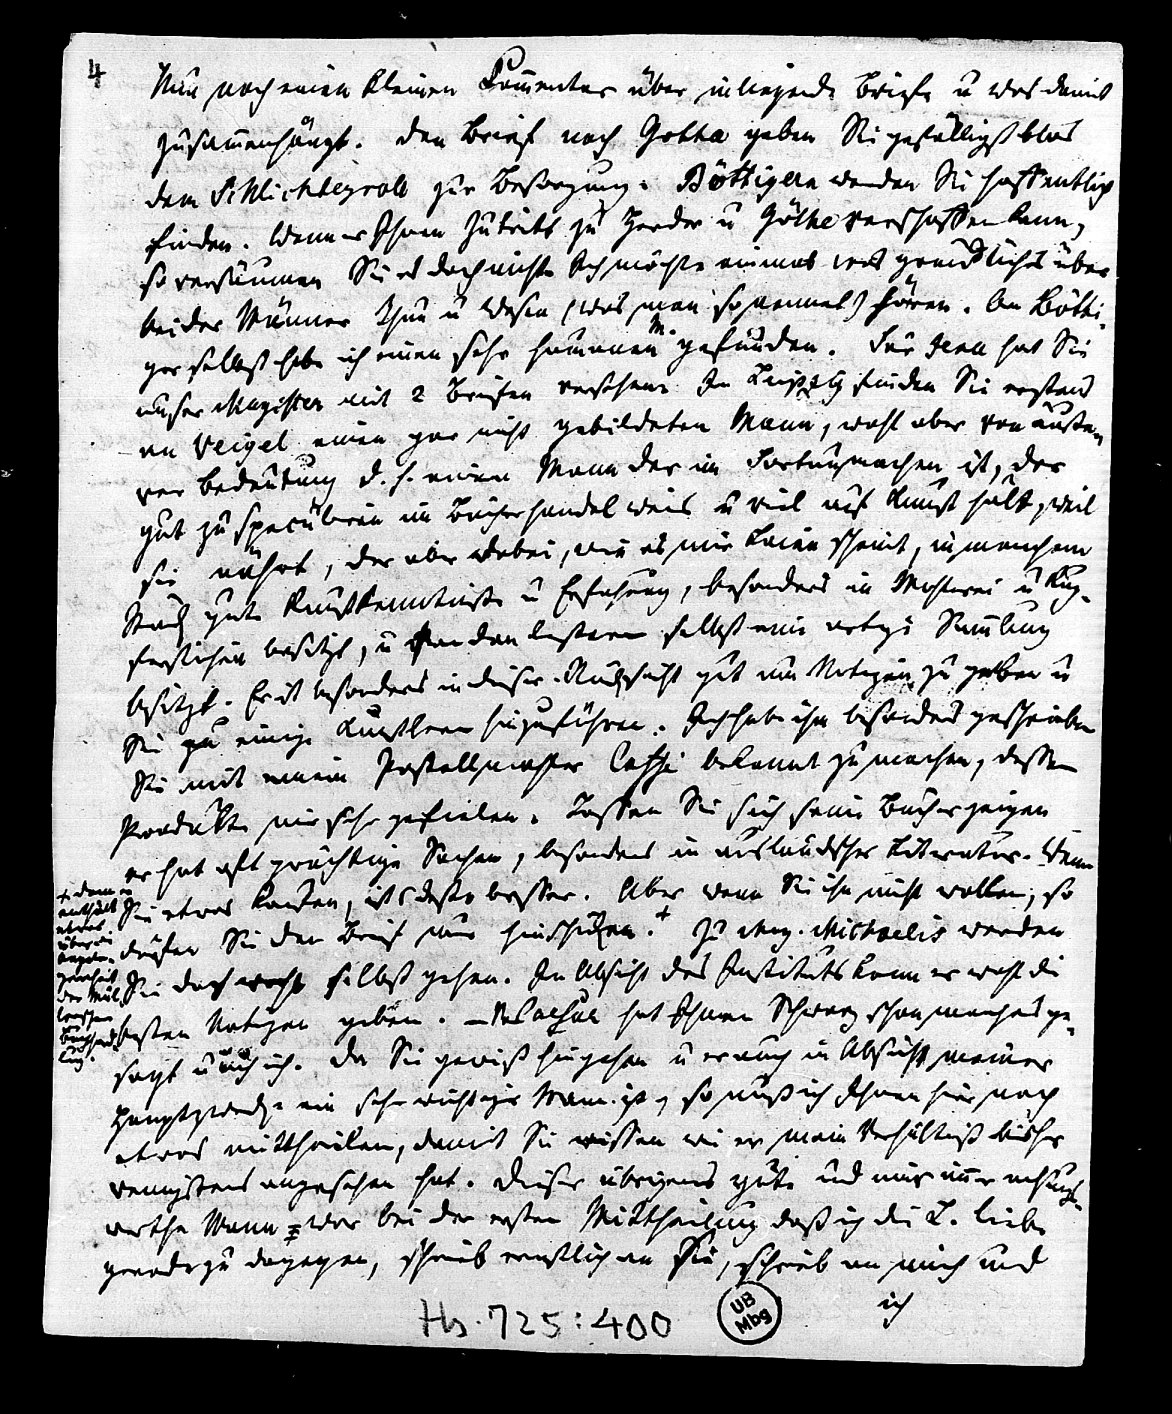 4
Nun noch einen kleinen Com̅entar über inliegende Briefe u was damit
zusam̅enhängt. Den Brief nach Gotha geben Sie gefälligst blos
dem Schlichtegroll zur Besorgung. Böttigern werden Sie hoffentlich
finden. Wenn er Ihnen Zutritt zu Herder u Göthe verschaffen kann,
so versäumen Sie es doch nicht. Ich möchte einmal was gründliches über
beider Männer Thun u Wesen (was man so nennt) hören. An Bötti-
ger selbst habe ich einen sehr humanen M. gefunden. Für Jena hat Sie
unser Magister mit 2 Briefen versehen. In Leipzig finden Sie erstens
an Weigel einen gar nicht gebildeten Mann, wohl aber von äußer-
rer Bedeutung d. h. einen Mann der im Fortunmachen ist, der
gut zu speculiren im Buchhandel weis u viel auf Kunst hält, weil
sie nährt, der aber dabei, wie es mir Laien scheint, in manchem
Fach gute Kunstkenntniße u Erfahrung, besonders in Mahlerei u Kup-
ferstichen besitzt, u von den lezteren selbst eine artige Sam̅lung
besitzt. Er ist besonders in dieser Rücksicht gut um Notizen zu geben u
Sie zu einige Künstlern hinzuführen. Ich habe ihn besonders geschrieben
Sie mit einem Pastellmahler bekannt zu machen, dessen
Produkte mir sehr gefielen. Lassen Sie sich seine Bücher zeigen
er hat oft prächtige Sachen, besonders in ausländischer Literatur. Wenn
Sie etwas kaufen, ists desto besser. Aber wenn Sie ihn nicht wollen, so
dürfen Sie den Brief nur hinschicken.+ Zu Mag. Michaelis werden
Sie doch wohl selbst gehen. In Absicht des Instituts kann er wohl die
besten Notizen geben. – hat Ihnen Schwarz schon manches ge-
sagt u auch ich. Da Sie gewiß hingehen u er auch in Absicht meiner
Hauptzwecke ein sehr wichtiger Mann ist, so muß ich Ihnen hier noch
etwas mittheilen, damit Sie wissen wie er mein Verhältniß bisher
wenigstens angesehen hat. Dieser übrigens gute und mir im̅er achtungs-
werthe Mann war bei der ersten Mittheilung daß ich die L. liebe
geradezu dagegen, schrieb ernstlich an Sie, schrieb an mich und
ich
+ denn er
enthält
etwas
über die
Angele-
genheit
der
Buchhand-
lung.
Hs. 725:400
UB
Mbg